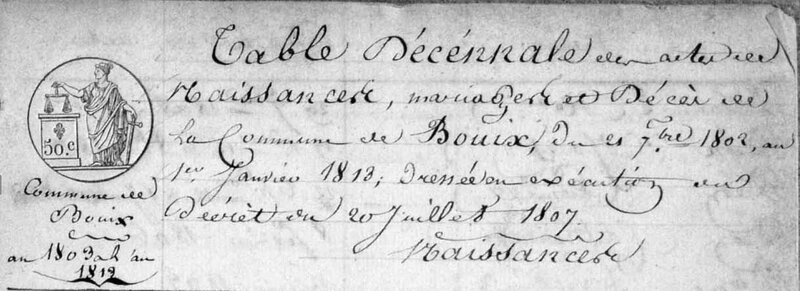 Table Décénnale des actes de
Naissances, mariages et Décès de
La Commune de Bouix, du 21 7.bre 1802, au
1er Janvier 1813; Dressée en exécution du
Décrèt du 20 Juillet 1807.
Naissances
50.c
Commune de
Bouix
an 1803 al'an
1812